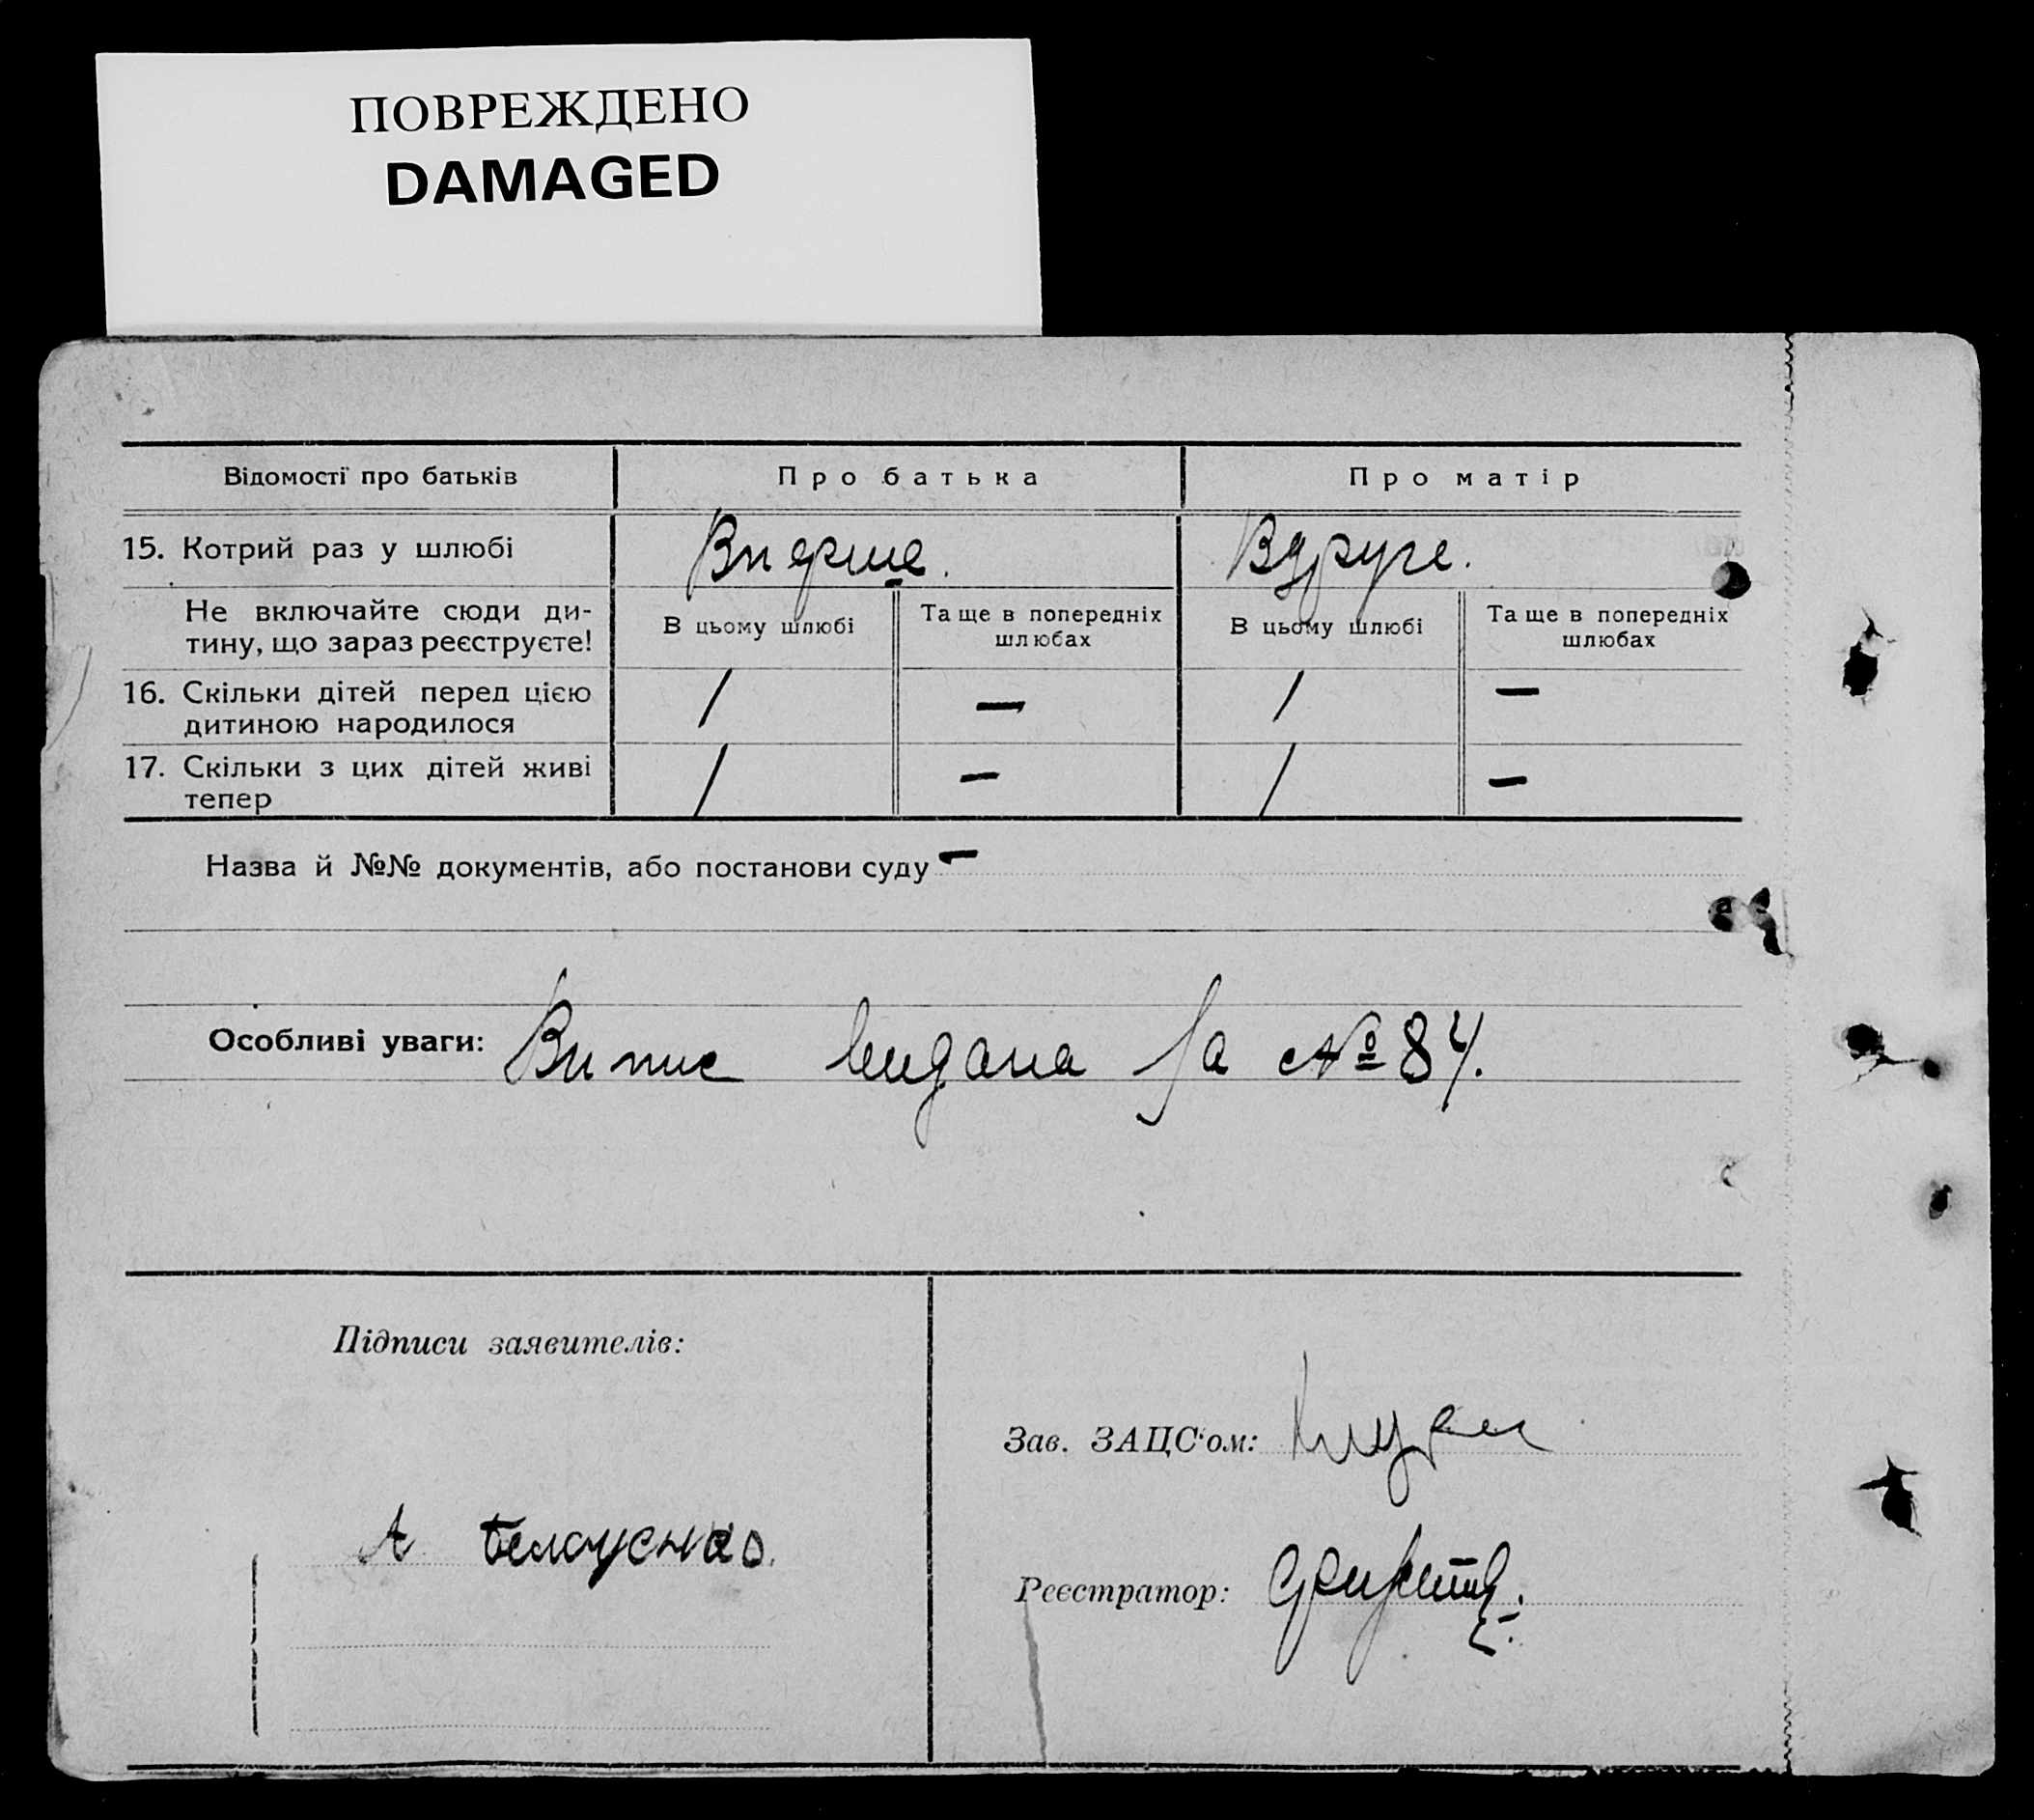 ПОВРЕЖДЕНО
DAMAGED
Відомості про батьків
Про батька
Про матір
15. Котрий раз у шлюбі
Вперше.
Вдруге.
Не включайте сюди ди-
тину, що зараз реєструєте!
В цьому шлюбі
Та ще в попередніх
шлюбах
В цьому шлюбі
Та ще в попередніх
шлюбах
16. Скільки дітей перед цією
дитиною народилося
1
—
1
—
17. Скільки з цих дітей живі
тепер
1
—
1
—
Назва й №№ документів, або постанови суду —
Особливі уваги: Випис видана за № 84.
Підписи заявителів:
А
Зав. ЗАЦС'ом:
Реєстратор: